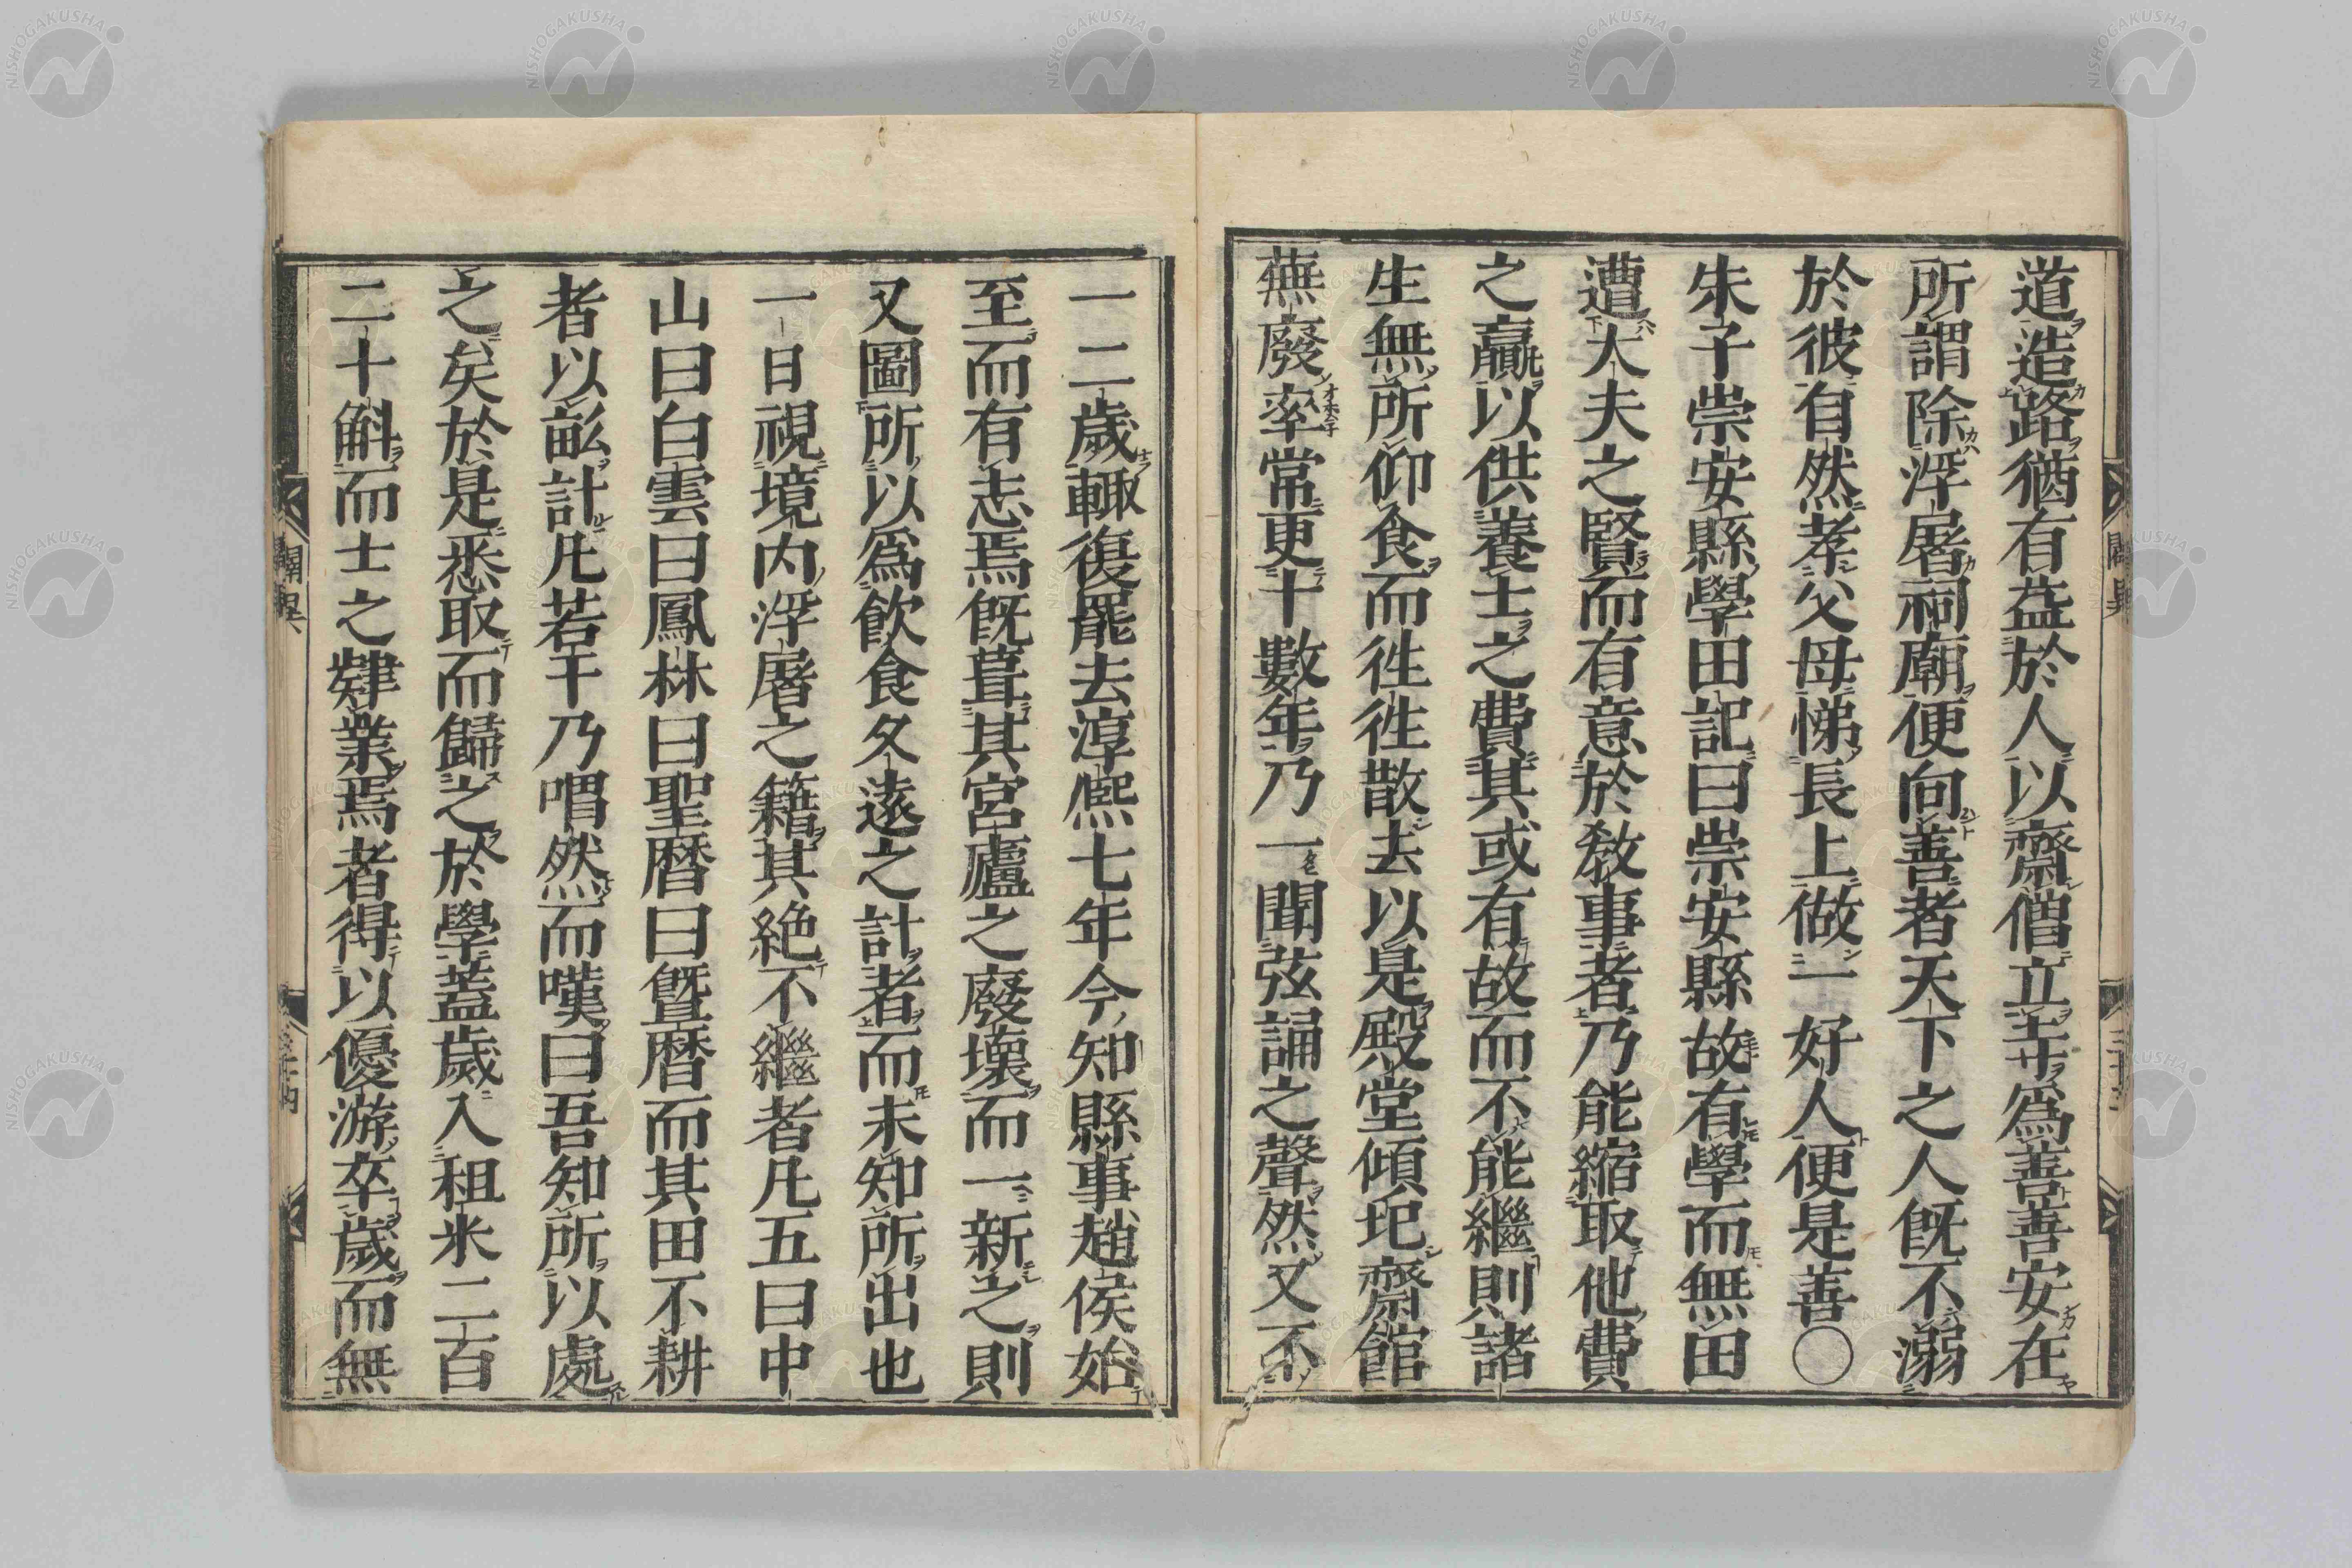 道造路猶有益於人以齋僧立寺爲善善安在
所謂除浮屠祠廟便向善者天下之人旣不溺
於彼自然孝父母悌長上做一好人便是善〇
朱子崇安縣學田記曰崇安縣故有學而無田
遭大夫之賢而有意於敎事者乃能縮取他費
之贏以供養士之費其或有故而不能繼則諸
生無所仰食而往往散去以是殿堂傾圮齋館
蕪廢率常更十數年乃一聞弦誦之聲然又不
一二歲輙復罷去淳熈七年今知縣事趙侯始
至而有志焉旣葺其宮廬之廢壞而一新之則
又圖所以爲飮食久遠之計者而未知所出也
一日視境内浮屠之籍其絶不繼者凡五曰中
山曰白雲曰鳳林曰聖暦曰曁暦而其田不耕
者以畝計凡若干乃喟然而嘆曰吾知所以處
之矣於是悉取而歸之於學蓋歲入租米二百
二十斛而士之肄業焉者得以優游卒歲而無
闢異
NISHOGAKUSHA